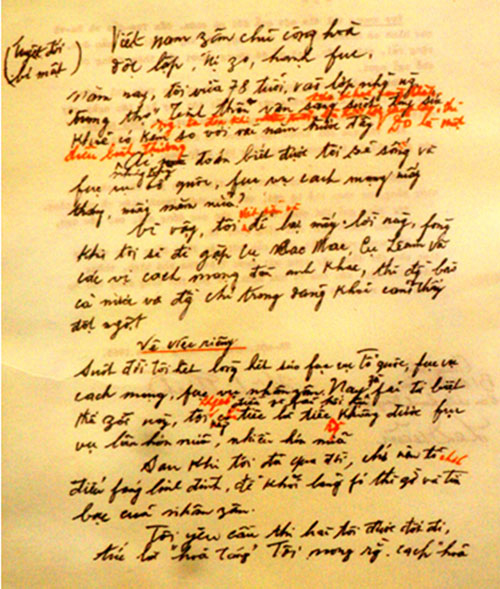 (Tuyệt đối
bí mật)
Việt nam zân chủ cộng hoà
độc lập, tự zo, hạnh fúc,
Năm nay, tôi vừa 78 tuổi, vào lớp những ng
"trung thọ". Tinh thần vẫn sáng suốt, tuy sức
khoẻ có kém so với vài năm trước đây. Đó là một
điều bình thường
Nhưng
Ai mà đoán biết được tôi sẽ sống và
fục vụ tổ quốc, fục vụ cách mạng mấy
tháng, mấy năm nữa?
Vì vậy, tôi để lại mấy lời này, fòng
khi tôi sẽ đi gặp cụ Mac, Cụ Lênin và
các vị cách mạng đàn anh khác, thì đg bào
cả nước và đg chí trong đảng khỏi cảm thấy
đột ngột
Về việc riêng
Suốt đời tôi hết lòng hết sức fục vụ Tổ quốc, fục vụ
cách mạng, fục vụ nhân zân. Nay fải từ biệt
thế zới này, tôi tiếc là tiếc không được fục
vụ lâu hơn nữa, nhiều hơn nữa
Sau khi tôi đã qua đời, chớ nên tổ chức
điếu fúng linh đình, để khỏi lãng fí thì zờ và tiền
bạc của nhân zân.
Tôi yêu cầu thi hài tôi được đốt đi,
tức là "hoả táng". Tôi mong rg cách hoả